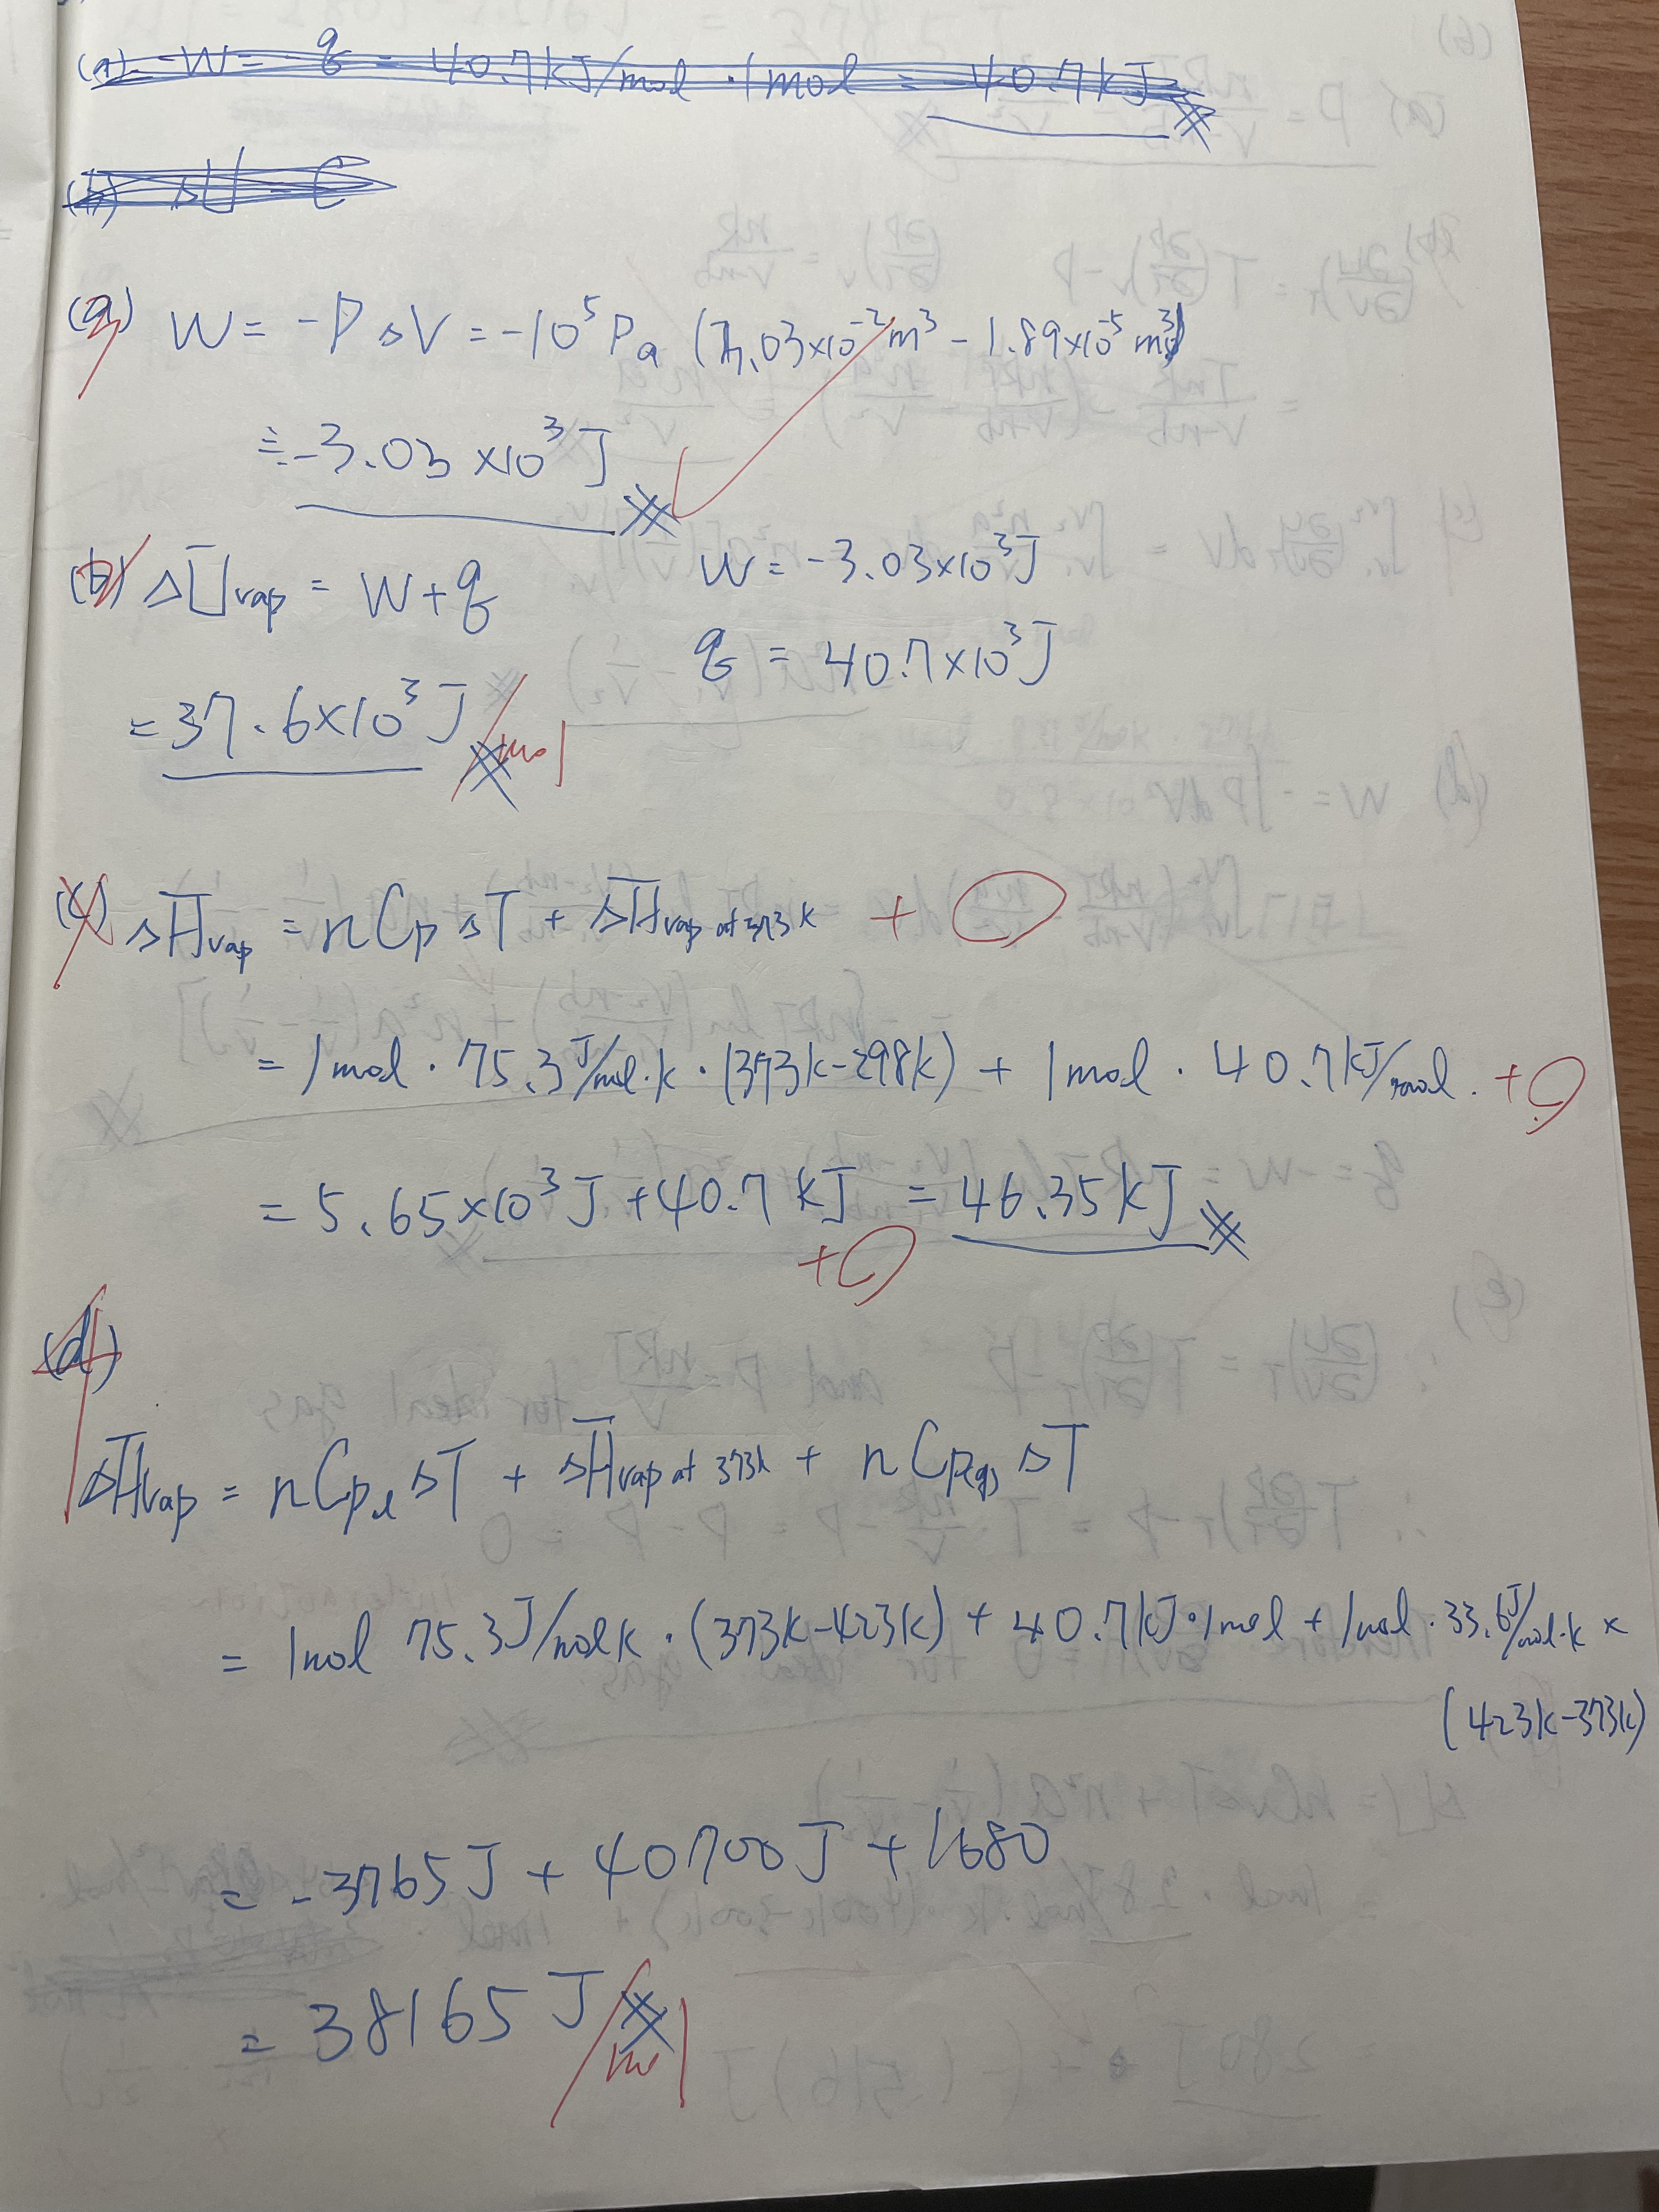 (a) W = q = 40.7kJ/mol · 1mol = 40.7kJ
(b) ΔU = C
(a) W = -PΔV = -10⁵ Pa (3.03×10⁻²m³ - 1.89×10⁻⁵m³)
≒ -3.03×10³J
(b) ΔŪvap = W+q W = -3.03×10³J
q = 40.7×10³J
= 37.6×10³J /mol
(c) ΔH̄vap = nCpΔT + ΔH̄vap at 373k + O
= 1mol · 75.3J/mol·k · (373k-298k) + 1mol · 40.7kJ/mol. + O
= 5.65×10³J + 40.7kJ = 46.35kJ
+ O
(d)
ΔH̄vap = nCp,lΔT + ΔH̄vap at 373k + nCp(g)ΔT
= 1mol 75.3J/molk · (373k-423k) + 40.7kJ·1mol + 1mol · 33.6J/mol·k ×
(423k-373k)
= -3765J + 40700J + 1680
= 38165J /mol